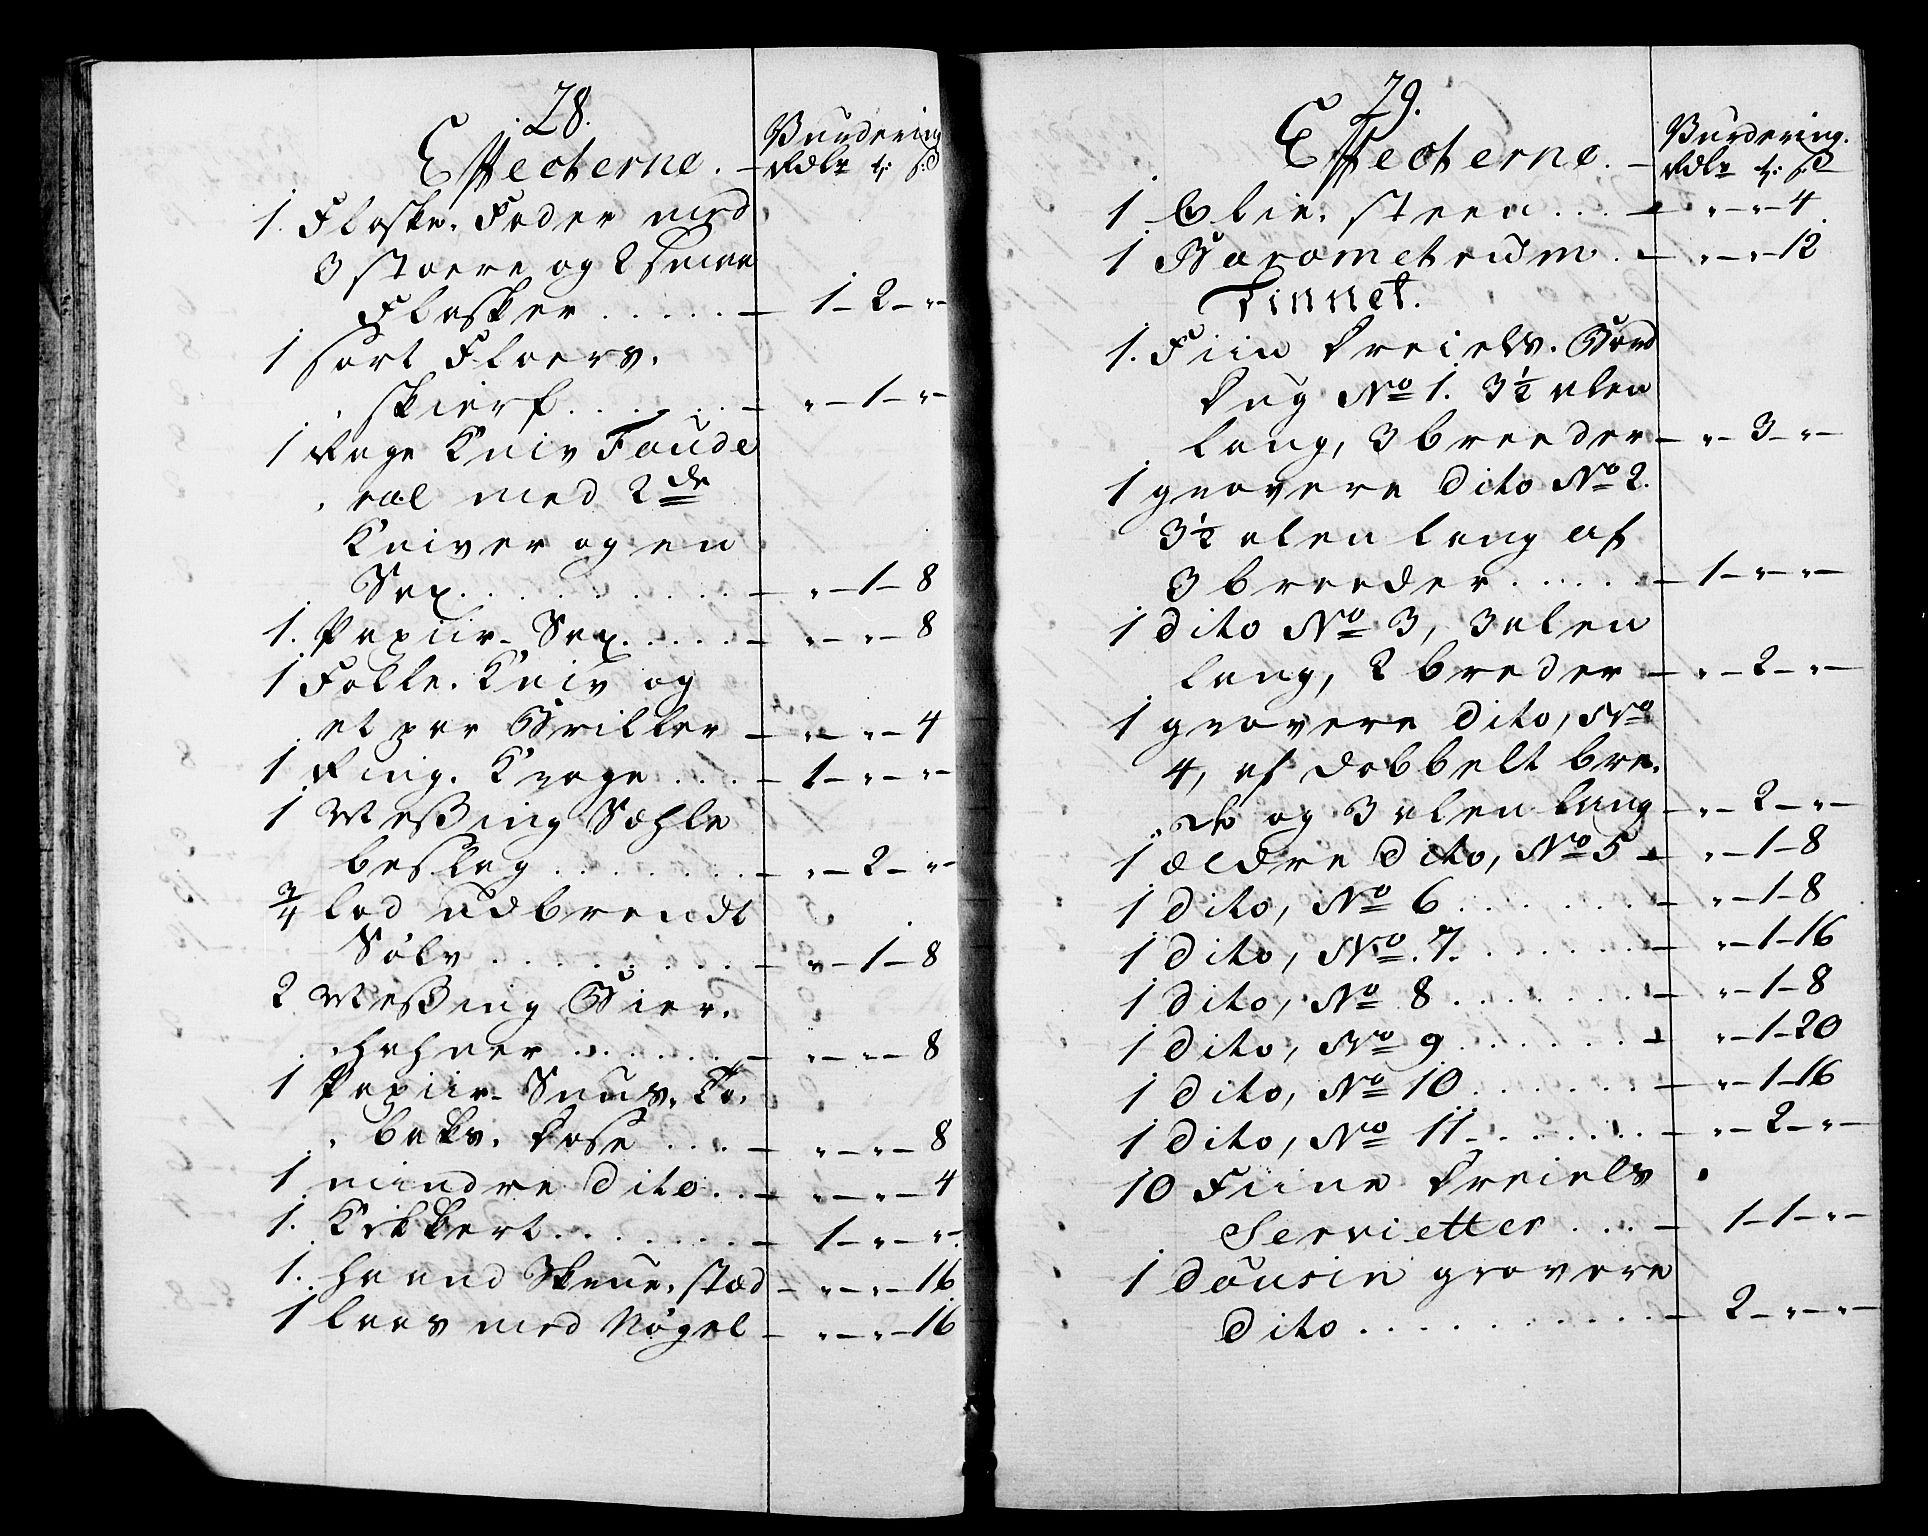 28.
Effecterne. Vurdering
Rdlr ꝷ: ß:
1. Floske. Foder med
3 stoere og 2 smaa
Flasker ..... – 1 – 2 – "
1 sort Floers.
skierf ...... – " – 1 – "
1 Rage Kniv Foude
ral med 2de
Kniver og en
Sax .......... – " – 1 – 8
1. Papiir. Sax ..... – " – " – 8
1 Folle. Kniv og
et par Briller – " – " – 4
1 Ring. Krage ... – 1 – " – "
1 Meßing Sæhle
beslag ....... – " – 2 – "
3/4 lod udbrendt
Sølv ........ – " – 1 – 8
2 Meßing Bier.
hahner ...... – " – " – 8
1 Papiir. Snus. To.
baks. Dose ... – " – " – 8
1 mindre Dito .. – " – " – 4
1. Kikkert ....... – 1 – " – "
1. haand Skrue. stæd – " – " – 16
1 laas med Nøgel – " – " – 16
29.
Effecterne. – Vurdering.
Rdlr ꝷ: ß:
1 Olie. steen ... – " – " – 4
1 Barometrum . – " – " – 12
Linnet.
1. Fiin Dreiels. Bord
Dug No 1. 3½ alen
lang, 3 breeder – " – 3 – "
1 grovere Dito No 2.
3½ alen lang af
3 breeder ...... – 1 – " – "
1 Dito No 3, 3 alen
lang, 2 breder – " – 2 – "
1 grovere Dito, No
4, af dobbelt bre.
de og 3 alen lang – " – 2 – "
1 ældre Dito, No 5 – " – 1 – 8
1 Dito, No 6 ....... – " – 1 – 8
1 Dito, No 7 ....... – " – 1 – 16
1 Dito, No 8 ....... – " – 1 – 8
1 Dito, No 9 ....... – " – 1 – 20
1 Dito, No 10 ....... – " – 1 – 16
1 Dito, No 11 ....... – " – 2 – "
10 Fiine Dreiels
Servietter ... – 1 – 1 – "
1 Dousin grovere
Dito .......... – 2 – " – "